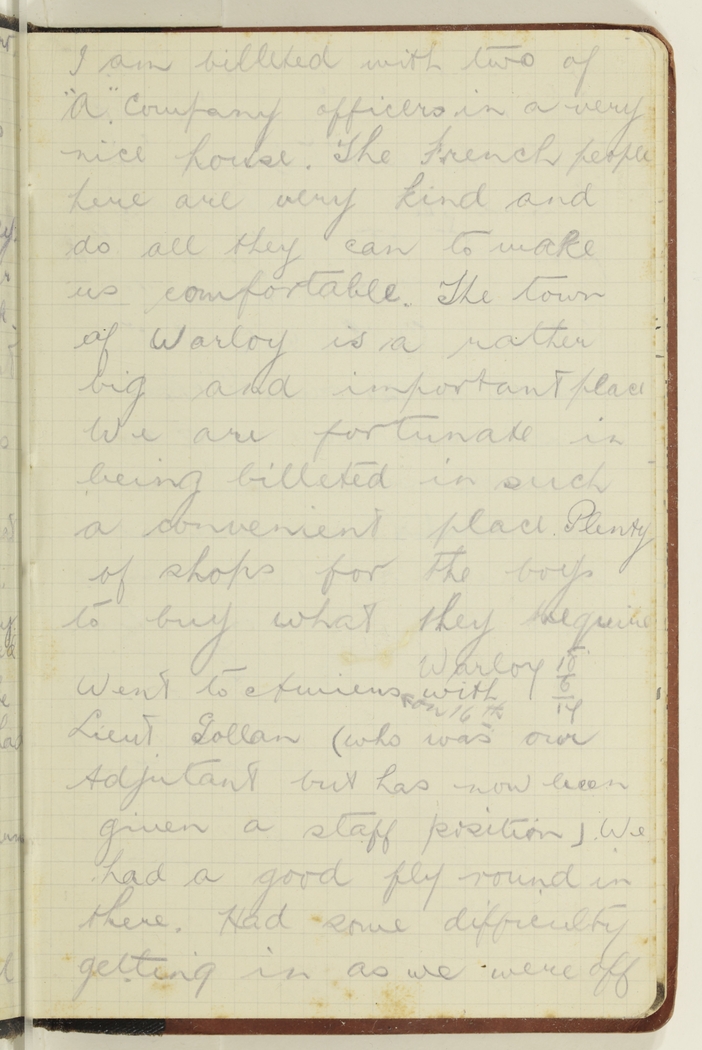 I am billeted with two of
"A" Company officers in a very
nice house. The French people
here are very kind and
do all they can to make
us comfortable. The town
of Warloy is a rather
big and important place
We are fortunate in
being billeted in such
a convenient place. Plenty
of shops for the boys
to buy what they require
Warloy
Went to Amiens with
on 16th
Lieut Gollan (who was our
Adjutant but has now been
given a staff position). We
had a good fly round in
there. Had some difficulty
getting in as we were off